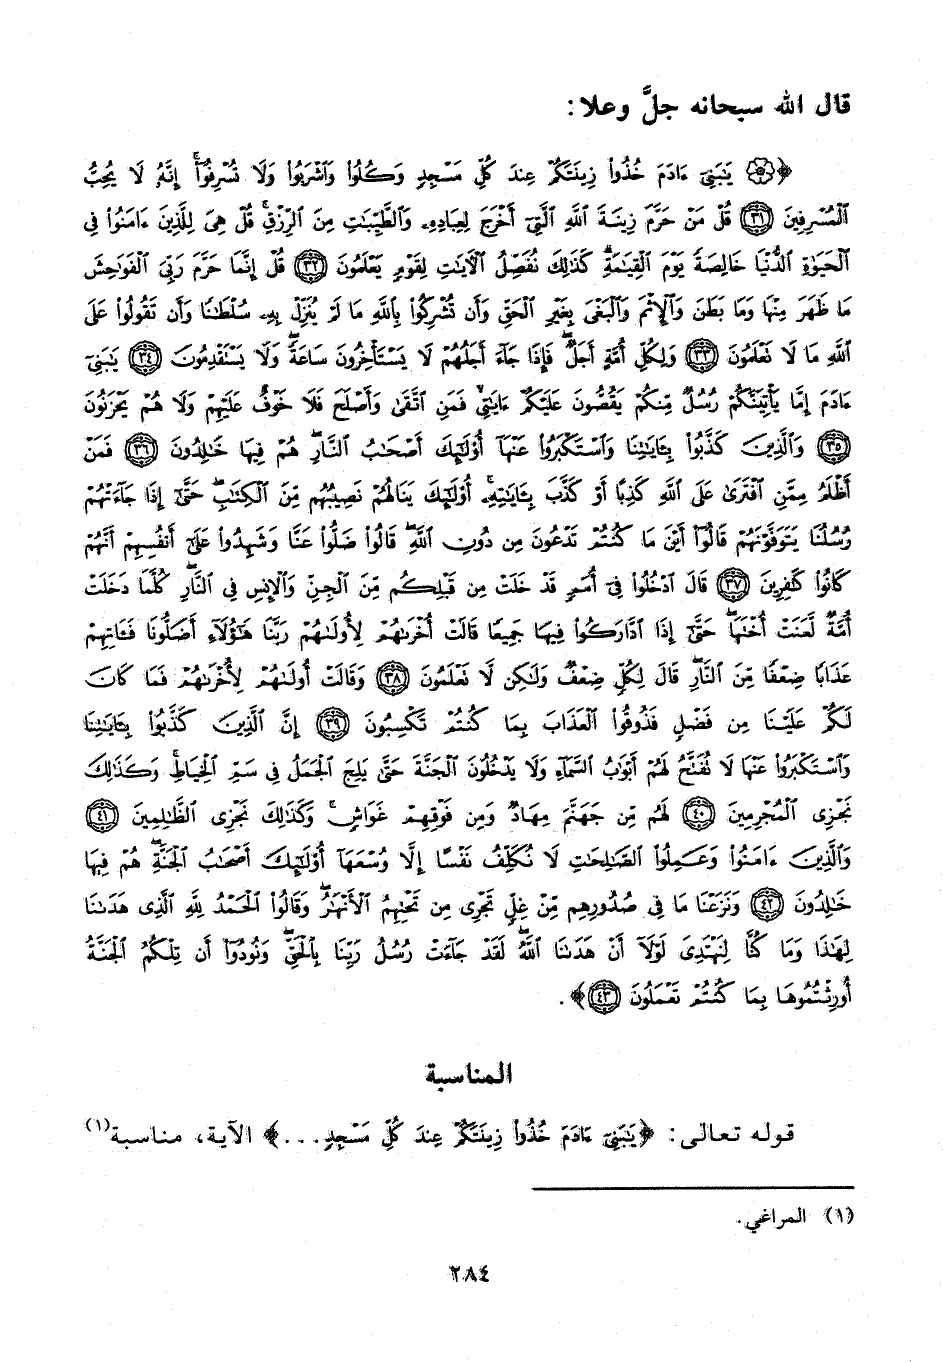 قال الله سبحانه جلَّ وعلا:
﴿۞ يَٰبَنِىٓ ءَادَمَ خُذُوا۟ زِينَتَكُمْ عِندَ كُلِّ مَسْجِدٍ وَكُلُوا۟ وَٱشْرَبُوا۟ وَلَا تُسْرِفُوٓا۟ۚ إِنَّهُۥ لَا يُحِبُّ
ٱلْمُسْرِفِينَ ﴿٣١﴾ قُلْ مَنْ حَرَّمَ زِينَةَ ٱللَّهِ ٱلَّتِىٓ أَخْرَجَ لِعِبَادِهِۦ وَٱلطَّيِّبَٰتِ مِنَ ٱلرِّزْقِۚ قُلْ هِىَ لِلَّذِينَ ءَامَنُوا۟ فِى
ٱلْحَيَوٰةِ ٱلدُّنْيَا خَالِصَةً يَوْمَ ٱلْقِيَٰمَةِۗ كَذَٰلِكَ نُفَصِّلُ ٱلْءَايَٰتِ لِقَوْمٍ يَعْلَمُونَ ﴿٣٢﴾ قُلْ إِنَّمَا حَرَّمَ رَبِّىَ ٱلْفَوَٰحِشَ
مَا ظَهَرَ مِنْهَا وَمَا بَطَنَ وَٱلْإِثْمَ وَٱلْبَغْىَ بِغَيْرِ ٱلْحَقِّ وَأَن تُشْرِكُوا۟ بِٱللَّهِ مَا لَمْ يُنَزِّلْ بِهِۦ سُلْطَٰنًا وَأَن تَقُولُوا۟ عَلَى
ٱللَّهِ مَا لَا تَعْلَمُونَ ﴿٣٣﴾ وَلِكُلِّ أُمَّةٍ أَجَلٌۖ فَإِذَا جَآءَ أَجَلُهُمْ لَا يَسْتَأْخِرُونَ سَاعَةًۖ وَلَا يَسْتَقْدِمُونَ ﴿٣٤﴾ يَٰبَنِىٓ
ءَادَمَ إِمَّا يَأْتِيَنَّكُمْ رُسُلٌ مِّنكُمْ يَقُصُّونَ عَلَيْكُمْ ءَايَٰتِىۙ فَمَنِ ٱتَّقَىٰ وَأَصْلَحَ فَلَا خَوْفٌ عَلَيْهِمْ وَلَا هُمْ يَحْزَنُونَ
﴿٣٥﴾ وَٱلَّذِينَ كَذَّبُوا۟ بِـَٔايَٰتِنَا وَٱسْتَكْبَرُوا۟ عَنْهَآ أُو۟لَٰٓئِكَ أَصْحَٰبُ ٱلنَّارِۖ هُمْ فِيهَا خَٰلِدُونَ ﴿٣٦﴾ فَمَنْ
أَظْلَمُ مِمَّنِ ٱفْتَرَىٰ عَلَى ٱللَّهِ كَذِبًا أَوْ كَذَّبَ بِـَٔايَٰتِهِۦٓۚ أُو۟لَٰٓئِكَ يَنَالُهُمْ نَصِيبُهُم مِّنَ ٱلْكِتَٰبِۖ حَتَّىٰٓ إِذَا جَآءَتْهُمْ
رُسُلُنَا يَتَوَفَّوْنَهُمْ قَالُوٓا۟ أَيْنَ مَا كُنتُمْ تَدْعُونَ مِن دُونِ ٱللَّهِۖ قَالُوا۟ ضَلُّوا۟ عَنَّا وَشَهِدُوا۟ عَلَىٰٓ أَنفُسِهِمْ أَنَّهُمْ
كَانُوا۟ كَٰفِرِينَ ﴿٣٧﴾ قَالَ ٱدْخُلُوا۟ فِىٓ أُمَمٍ قَدْ خَلَتْ مِن قَبْلِكُم مِّنَ ٱلْجِنِّ وَٱلْإِنسِ فِى ٱلنَّارِۖ كُلَّمَا دَخَلَتْ
أُمَّةٌ لَّعَنَتْ أُخْتَهَاۖ حَتَّىٰٓ إِذَا ٱدَّارَكُوا۟ فِيهَا جَمِيعًا قَالَتْ أُخْرَىٰهُمْ لِأُولَىٰهُمْ رَبَّنَا هَٰٓؤُلَآءِ أَضَلُّونَا فَـَٔاتِهِمْ
عَذَابًا ضِعْفًا مِّنَ ٱلنَّارِۖ قَالَ لِكُلٍّ ضِعْفٌ وَلَٰكِن لَّا تَعْلَمُونَ ﴿٣٨﴾ وَقَالَتْ أُولَىٰهُمْ لِأُخْرَىٰهُمْ فَمَا كَانَ
لَكُمْ عَلَيْنَا مِن فَضْلٍ فَذُوقُوا۟ ٱلْعَذَابَ بِمَا كُنتُمْ تَكْسِبُونَ ﴿٣٩﴾ إِنَّ ٱلَّذِينَ كَذَّبُوا۟ بِـَٔايَٰتِنَا
وَٱسْتَكْبَرُوا۟ عَنْهَا لَا تُفَتَّحُ لَهُمْ أَبْوَٰبُ ٱلسَّمَآءِ وَلَا يَدْخُلُونَ ٱلْجَنَّةَ حَتَّىٰ يَلِجَ ٱلْجَمَلُ فِى سَمِّ ٱلْخِيَاطِۚ وَكَذَٰلِكَ
نَجْزِى ٱلْمُجْرِمِينَ ﴿٤٠﴾ لَهُم مِّن جَهَنَّمَ مِهَادٌ وَمِن فَوْقِهِمْ غَوَاشٍۚ وَكَذَٰلِكَ نَجْزِى ٱلظَّٰلِمِينَ ﴿٤١﴾
وَٱلَّذِينَ ءَامَنُوا۟ وَعَمِلُوا۟ ٱلصَّٰلِحَٰتِ لَا نُكَلِّفُ نَفْسًا إِلَّا وُسْعَهَآ أُو۟لَٰٓئِكَ أَصْحَٰبُ ٱلْجَنَّةِۖ هُمْ فِيهَا
خَٰلِدُونَ ﴿٤٢﴾ وَنَزَعْنَا مَا فِى صُدُورِهِم مِّنْ غِلٍّ تَجْرِى مِن تَحْتِهِمُ ٱلْأَنْهَٰرُۖ وَقَالُوا۟ ٱلْحَمْدُ لِلَّهِ ٱلَّذِى هَدَىٰنَا
لِهَٰذَا وَمَا كُنَّا لِنَهْتَدِىَ لَوْلَآ أَنْ هَدَىٰنَا ٱللَّهُۖ لَقَدْ جَآءَتْ رُسُلُ رَبِّنَا بِٱلْحَقِّۖ وَنُودُوٓا۟ أَن تِلْكُمُ ٱلْجَنَّةُ
أُورِثْتُمُوهَا بِمَا كُنتُمْ تَعْمَلُونَ ﴿٤٣﴾﴾.
المناسبة
قوله تعالى: ﴿يَٰبَنِىٓ ءَادَمَ خُذُوا۟ زِينَتَكُمْ عِندَ كُلِّ مَسْجِدٍ...﴾ الآية، مناسبة(١)
(١) المراغي.
٢٨٤